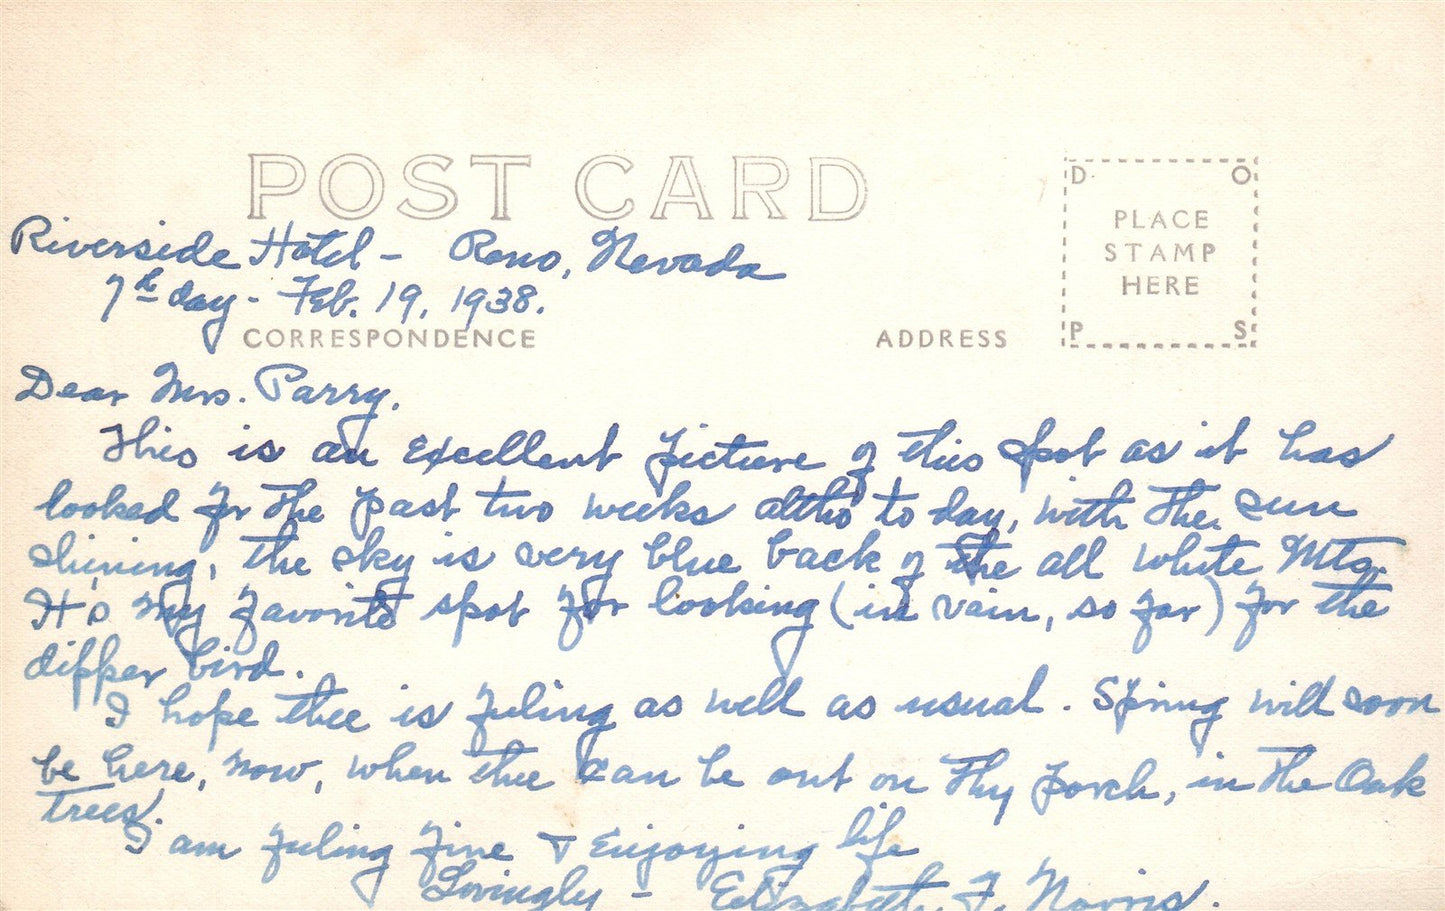 POST CARD
D O
PLACE
STAMP
HERE
P S
Riverside Hotel - Reno, Nevada
7th day - Feb. 19, 1938.
CORRESPONDENCE
ADDRESS
Dear Mrs. Parry,
This is an excellent picture of this spot as it has
looked for the past two weeks altho to day, with the sun
shining, the sky is very blue back of the all white Mts.
It is my favorite spot for looking (in vain, so far) for the
dipper bird.
I hope thee is feeling as well as usual. Spring will soon
be here, now, when thee can be out on thy porch, in the Oak
trees.
I am feeling fine & enjoying life
Lovingly - Elizabeth F. Norris.